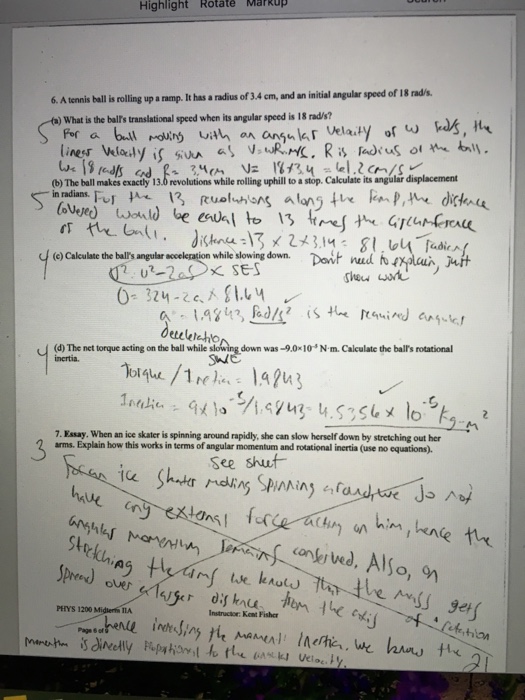 Highlight Rotate Markup
6. A tennis ball is rolling up a ramp. It has a radius of 3.4 cm, and an initial angular speed of 18 rad/s.
(a) What is the ball's translational speed when its angular speed is 18 rad/s?
5 For a ball moving with an angular velaity of w rad/s, the
linear velocity is given as V=wR m/s. R is radius of the ball.
w= 18 rad/s and R= 3.4cm V= 18*3.4 = 61.2 cm/s ✓
(b) The ball makes exactly 13.0 revolutions while rolling uphill to a stop. Calculate its angular displacement
5 in radians. For the 13 revolutions along the ramp, the distance
Covered would be equal to 13 times the circumference
of the ball. distance = 13 × 2×3.14 = 81.64 radians
4 (c) Calculate the ball's angular acceleration while slowing down. Don't need to explain, just
show work
× SES
0= 324-2a×81.64 ✓
a = 1.9843 rad/s² is the required angular
deceleration
4 (d) The net torque acting on the ball while slowing down was –9.0×10⁻⁵ N·m. Calculate the ball's rotational
inertia.
Torque / Inertia = 1.9843
Inertia = 9×10⁻⁵/1.9843= 4.5356×10⁻⁵ kg-m² ✓
7. Essay. When an ice skater is spinning around rapidly, she can slow herself down by stretching out her
arms. Explain how this works in terms of angular momentum and rotational inertia (use no equations).
3 See sheet
For an ice skater moving spinning around, we do not
have any external force acting on him, hence the
angular momentum remains conserved. Also, on
stretching the arms we know that the mass gets
spread over a larger distance from the axis of rotation
PHYS 1200 Midterm IIA Instructor: Kent Fisher
Page 6 of 6 hence increasing the moment inertia. We know the
momentum is directly proportional to the velocity.
21